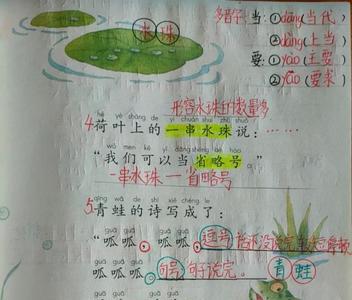 多音字:当:①dāng(当代)
水珠
②dàng(上当)
要:①yào(主要)
②yāo(要求)
形容水珠的数量多
hé yè shàng de yí chuàn shuǐ zhū shuō
4荷叶上的一串水珠说:
wǒ men kě yǐ dāng shěng lüè hào
“我们可以当省略号。”
一串水珠—省略号
qīng wā de shī xiě chéng le
5青蛙的诗写成了:
guā guā guā guā
“呱呱,呱呱,逗号
guā guā guā guā
呱呱,呱呱。句号,句子说完。
青蛙
guā guā guā